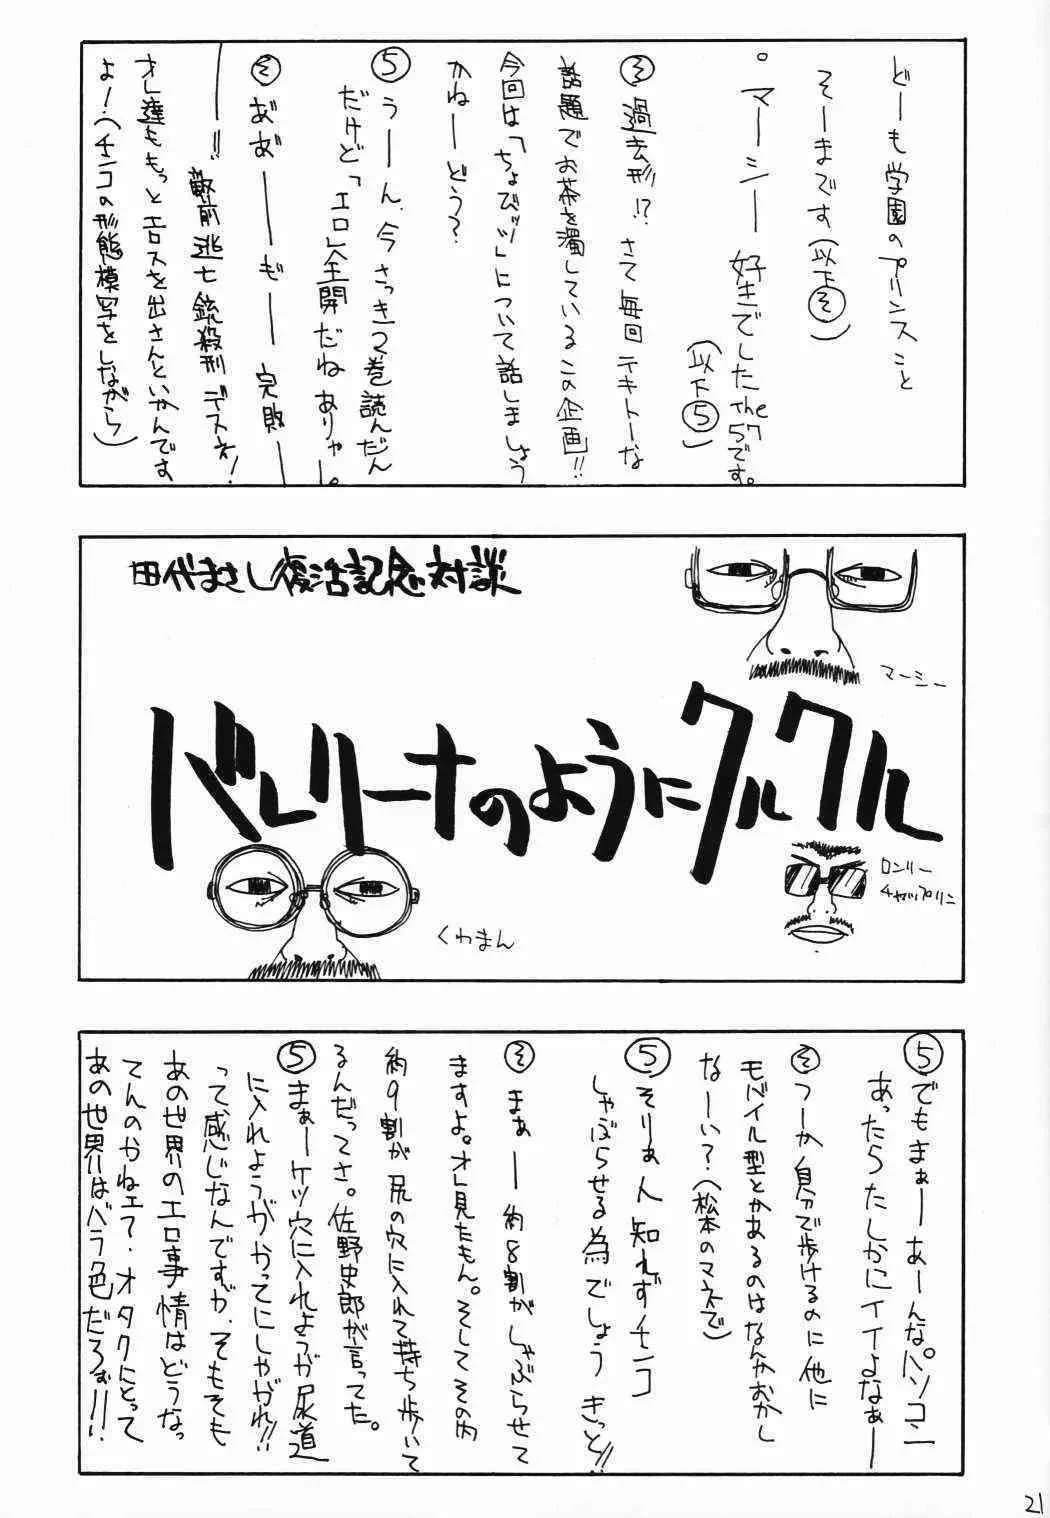 どーも学園のプリンスこと
そーまです(以下そ)
。マーシー好きでしたthe57です。
(以下5)
そ 過去形!?さて毎回テキトーな
話題でお茶を濁しているこの企画!!
今回は「ちょびっツ」について話しましょう
かねーどう?
5 うーん、今さっき2巻読んだん
だけど「エロ」全開だねありゃ。
そ あ゛あ゛ーーも゛ー完敗ー
ー!!敵前逃亡銃殺刑デスネ!
オレ達ももっとエロスを出さんといかんです
よ!(チンコの形態模写をしながら)
田代まさし復活記念対談
バレリーナのようにクルクル
マーシー
ロンリー
チャップリン
くわまん
5 でもまぁーあーんなパソコン
あったらたしかにイイよなぁー
そ つーか自分で歩けるのに他に
モバイル型とかあるのはなんかおかし
なーい?(松本のマネで)
5 そりゃ人知れずチンコ
しゃぶらせる為でしょうきっと!!
そ まぁー約8割がしゃぶらせて
ますよ。オレ見たもん。そしてその内
約9割が尻の穴に入れて持ち歩いて
るんだってさ。佐野史郎が言ってた。
5 まぁーケツ穴に入れようが尿道
に入れようがかってにしやがれ!!
って感じなんですが、そもそも
あの世界のエロ事情はどうなっ
てんのかねェ?・オタクにとって
あの世界はバラ色だろぉ!!!
21